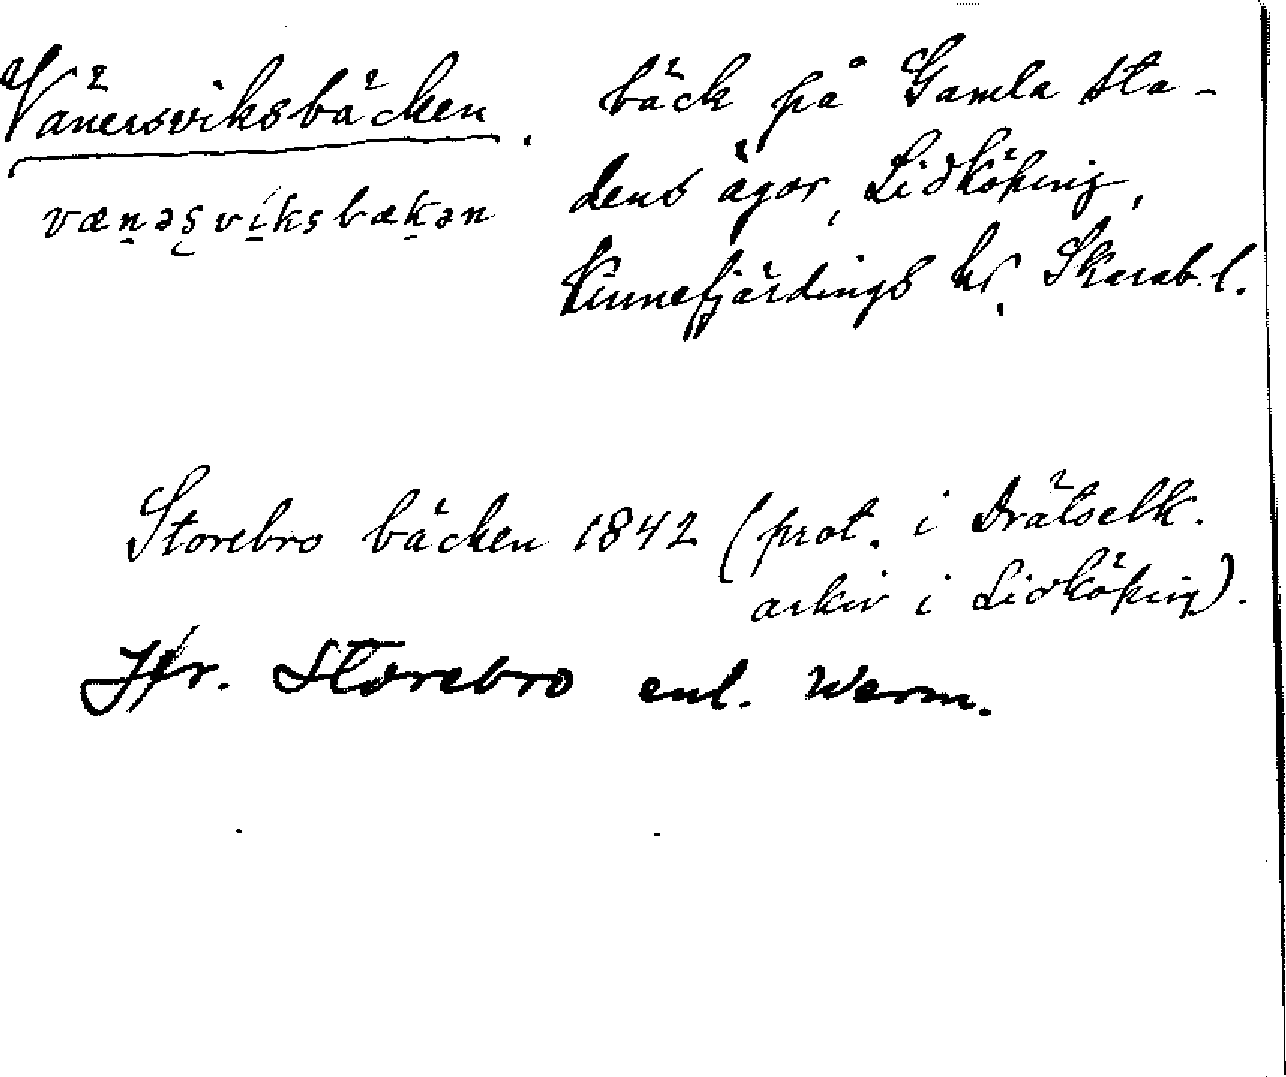 Vänersviksbäcken. bäck på Gamla sta-
dens ägor, Lidköping,
Kinnefjärdings hd, Skarab. l.
væn̲əs̨vi̲ksbæk̲ən
Storebro bäcken 1842 (prot. i Drätselk.
arkiv i Lidköping).
Jfr. Storebro enl. Werm.